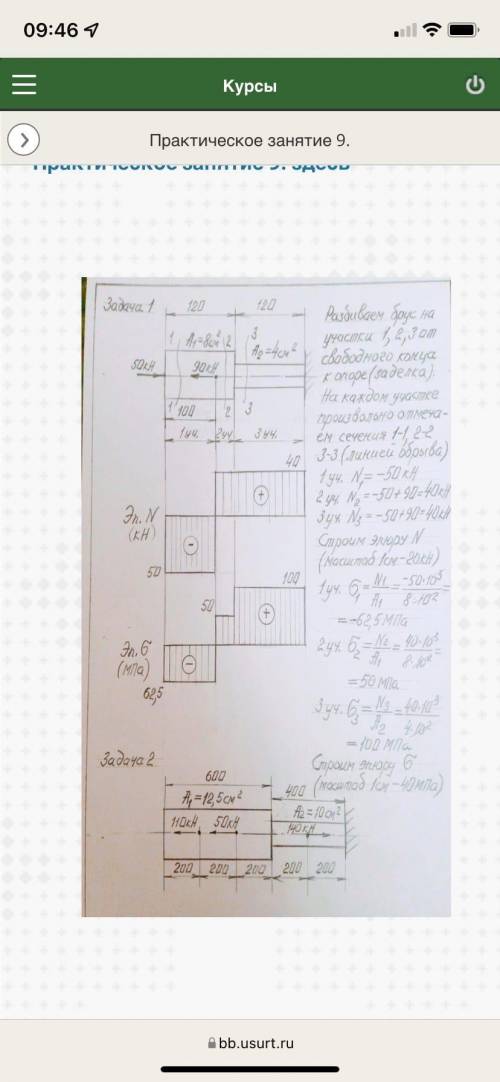 09:46
Курсы
Практическое занятие 9.
Практическое занятие 9. здесь
Задача 1
120
120
1
A₁=8см²
2
3
A₂=4см²
50кН
90кН
100
1
2
3
1уч.
2уч
3 уч.
40
Эп. N
(кН)
50
100
50
Эп. б
(МПа)
62,5
Разбиваем брус на
участки 1, 2, 3 от
свободного конца
к опоре (заделка).
На каждом участке
произвольно отмеча-
ем сечения 1-1, 2-2
3-3 (линией обрыва)
1 уч. N₁= -50кН
2 уч. N₂= -50+90=40кН
3 уч. N₃= -50+90=40кН
Строим эпюру N
(масштаб 1см-20кН)
1 уч. б₁= N₁/A₁ = -50·10³/8·10² =
= -62,5 МПа
2 уч. б₂= N₂/A₁ = 40·10³/8·10² =
= 50 МПа
3 уч. б₃= N₃/A₂ = 40·10³/4·10²
= 100 МПа
Строим эпюру б
(масштаб 1см-40МПа)
Задача 2
600
400
A₁=12,5см²
A₂=10см²
110кН
50кН
140кН
200
200
200
200
200
bb.usurt.ru